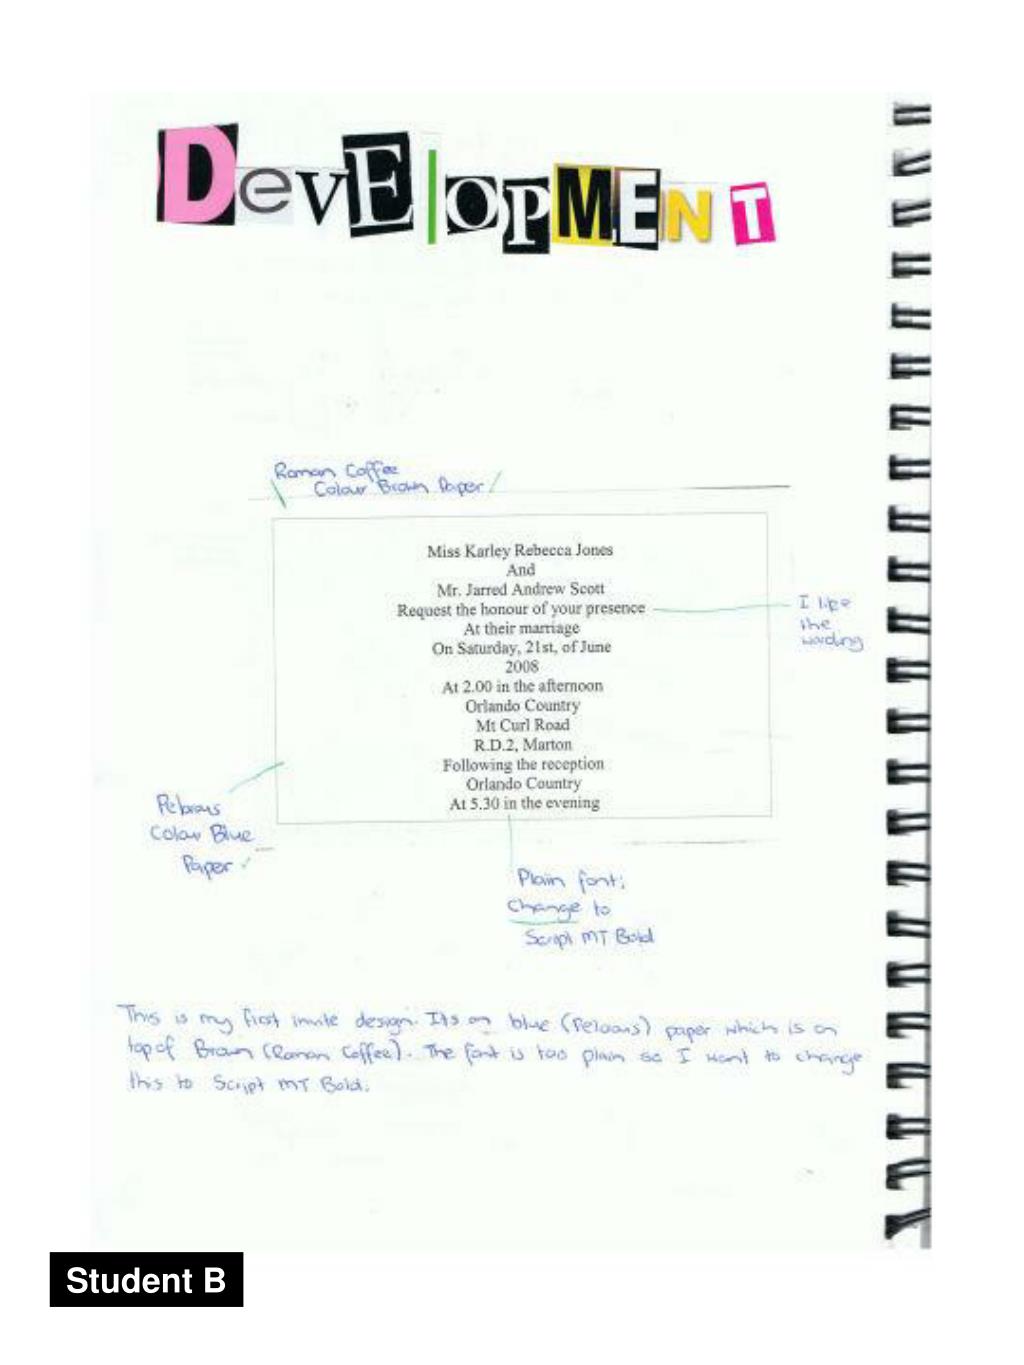 DevElOPMENT
Roman Coffee
Colour Brown Paper
Miss Karley Rebecca Jones
And
Mr. Jarred Andrew Scott
Request the honour of your presence
At their marriage
On Saturday, 21st, of June
2008
At 2.00 in the afternoon
Orlando Country
Mt Curl Road
R.D.2, Marton
Following the reception
Orlando Country
At 5.30 in the evening
I like
the
wording
Colour Blue
Paper
Plain font;
Change to
Script MT Bold
This is my first invite design. Its on blue (Peloous) paper which is on
top of Brown (Roman Coffee). The font is too plain so I want to change
this to Script MT Bold.
Student B